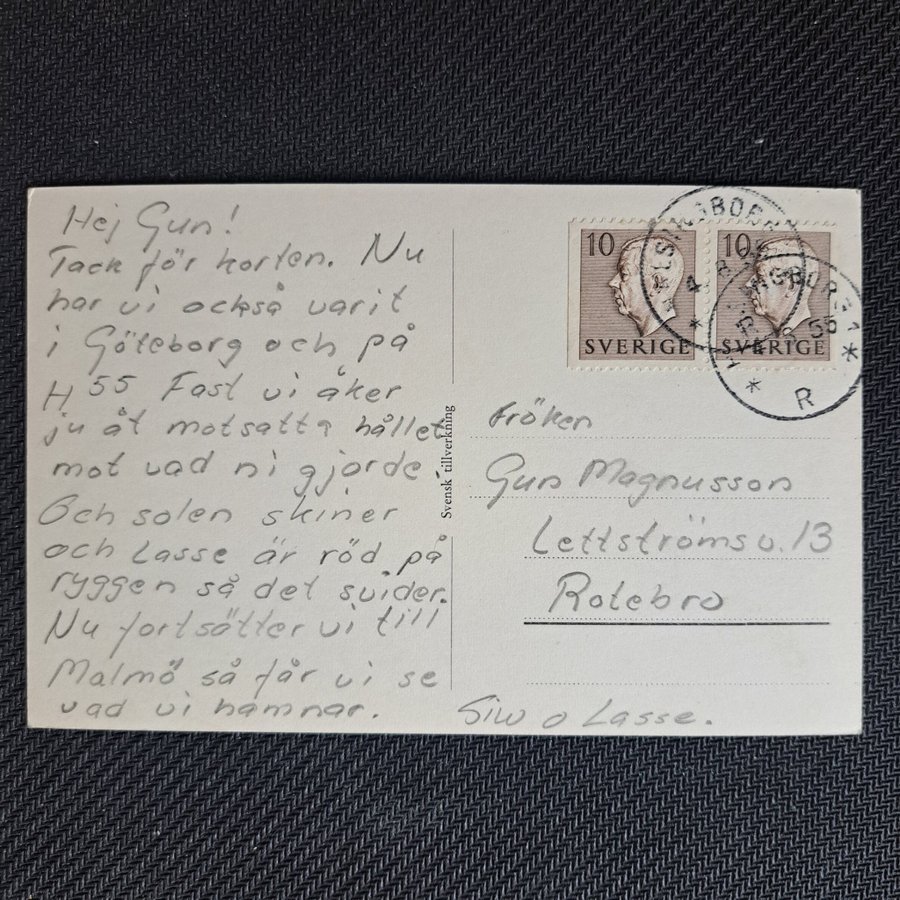 Hej Gun!
Tack för korten. Nu
har vi också varit
i Göteborg och på
H 55 Fast vi åker
ju åt motsatta hållet
mot vad ni gjorde.
Och solen skiner
och Lasse är röd på
ryggen så det svider.
Nu fortsätter vi till
Malmö så får vi se
vad vi hamnar.
Siw o Lasse.
Svensk tillverkning
10
SVERIGE
10
SVERIGE
55
* R *
Fröken
Gun Magnusson
Lettströmsv. 13
Rotebro